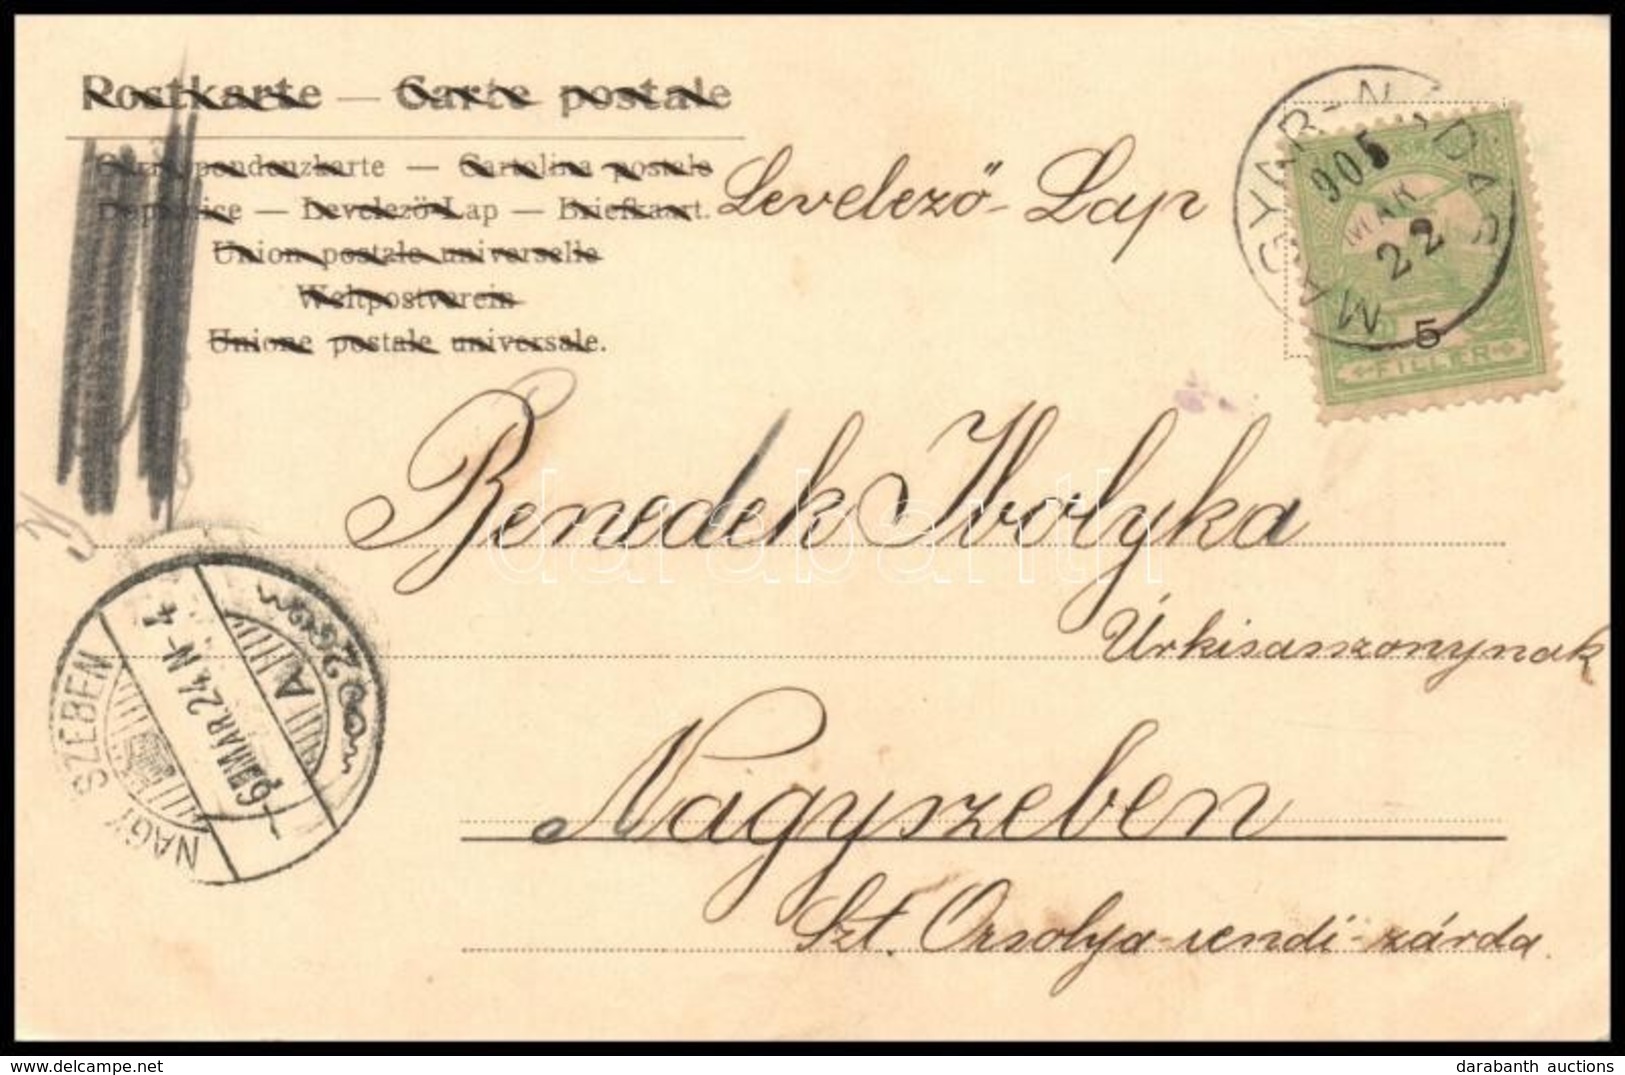 Postkarte — Carte postale
Correspondenzkarte — Cartolina postale
Levelező-Lap — Briefkaart.
Levelező-Lap
Union postale universelle
Weltpostverein
Unione postale universale.
905
MÁR
22
5
FILLÉR
Benedek Ibolyka
Úrkisasszonynak
Nagyszeben
Szt. Orsolya-rendi-zárda.
NAGY SZEBEN
MAR. 24. N 4
A
darabanth
darabanth auctions